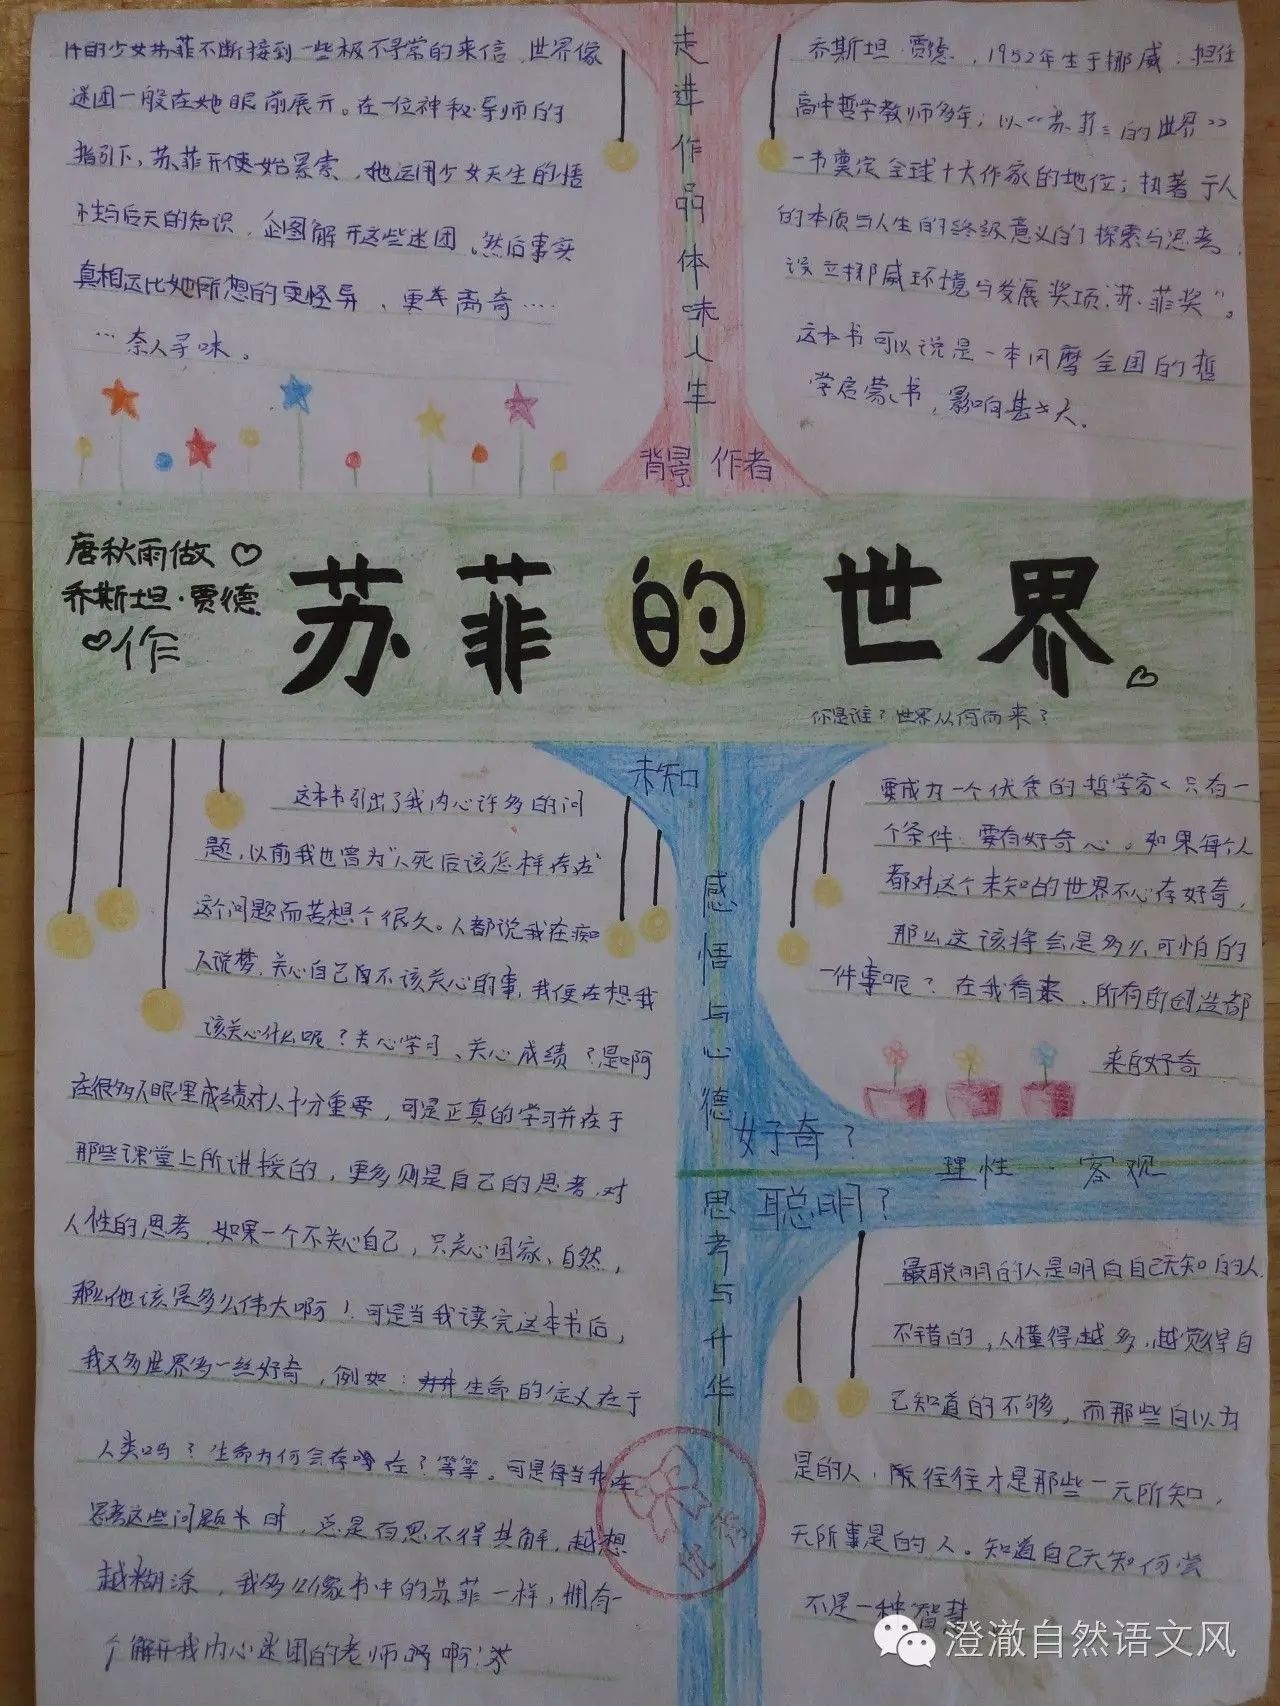 的少女苏菲不断接到一些极不寻常的来信，世界像
谜团一般在她眼前展开。在一位神秘导师的
指引下，苏菲开始索，她运用少女天生的悟
性与后天的知识，企图解开这些迷团。然后事实
真相远比她所想的更怪异、更离奇……
…奈人寻味。
走进作品体味人生
背景 作者
乔斯坦·贾德，1952年生于挪威，担任
高中哲学教师多年；以“苏菲的世界”
一书奠定全球十大作家的地位；执著于人
的本质与人生的终级意义的探索与思考，
设立挪威环境与发展奖项“苏菲奖”。
这本书可以说是一本风靡全国的哲
学启蒙书，影响甚大。
唐秋雨做
乔斯坦·贾德
作
苏菲的世界。
你是谁？世界从何而来？
未知
感悟与心德
思考与升华
这本书引出了我内心许多的问
题，以前我也曾为“人死后该怎样存在”
这个问题而苦想个很久。人都说我在痴
人说梦，关心自己不该关心的事，我便在想我
该关心什么呢？关心学习、关心成绩？是啊
在很多人眼里成绩对人十分重要，可是正真的学习并在于
那些课堂上所讲授的，更多则是自己的思考，对
人性的思考，如果一个不关心自己，只关心国家、自然，
那么他该是多么伟大啊！可是当我读完这本书后，
我又多世界多一丝好奇，例如：生命的定义在于
人类吗？生命为何会存在？等等。可是每当我在
思考这些问题时，总是百思不得其解，越想
越糊涂，我多像书中的苏菲一样，拥有一
个解开我内心迷团的老师啊！
要成为一个优秀的哲学家只有一
个条件：要有好奇心。如果每个人
都对这个未知的世界不心存好奇，
那么这该将会是多么可怕的
一件事呢？在我看来，所有的创造都
来自好奇
好奇？
聪明？
理性 客观
最聪明的人是明白自己无知的人
不错的，人懂得越多，越觉得自
己知道的不够，而那些自以为
是的人，往往才是那些一无所知，
无所事是的人。知道自己无知何尝
不是一种智慧
澄澈自然语文风